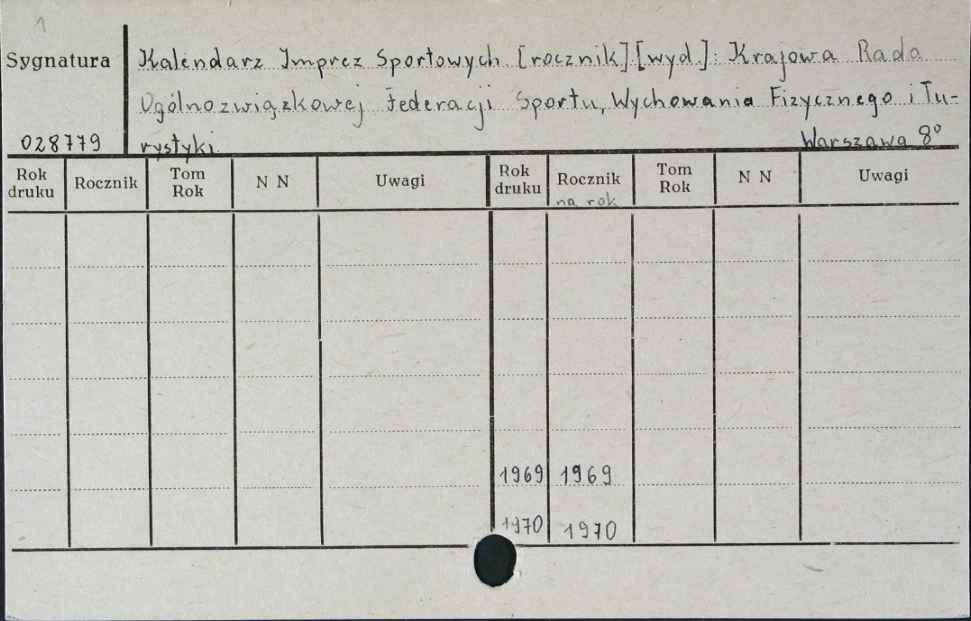 1
Sygnatura
028779
Kalendarz Imprez Sportowych [rocznik] [wyd.]: Krajowa Rada
Ogólnozwiązkowej Federacji Sportu, Wychowania Fizycznego i Tu-
rystyki. Warszawa 8°
Rok druku Rocznik Tom Rok N N Uwagi Rok druku Rocznik na rok Tom Rok N N Uwagi
1969 1969
1970 1970